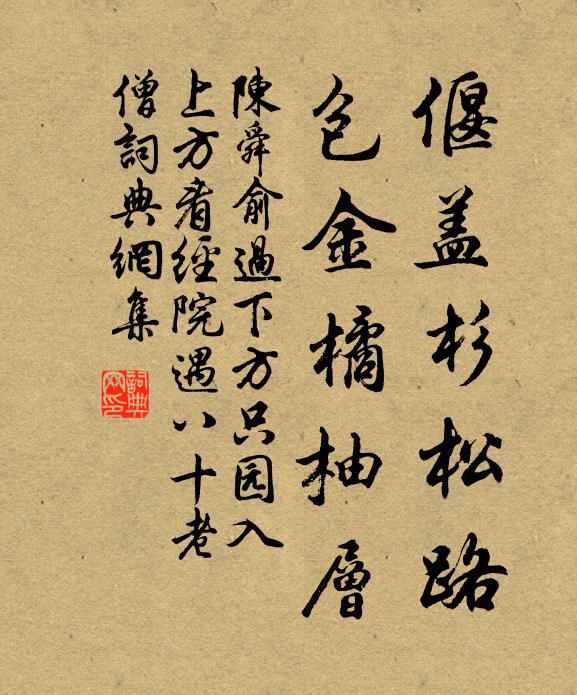 偃盖杉松路
包金橘柚層
陳舜俞過下方只园入
上方看經院遇八十老
僧詞典網集
詞典
网印